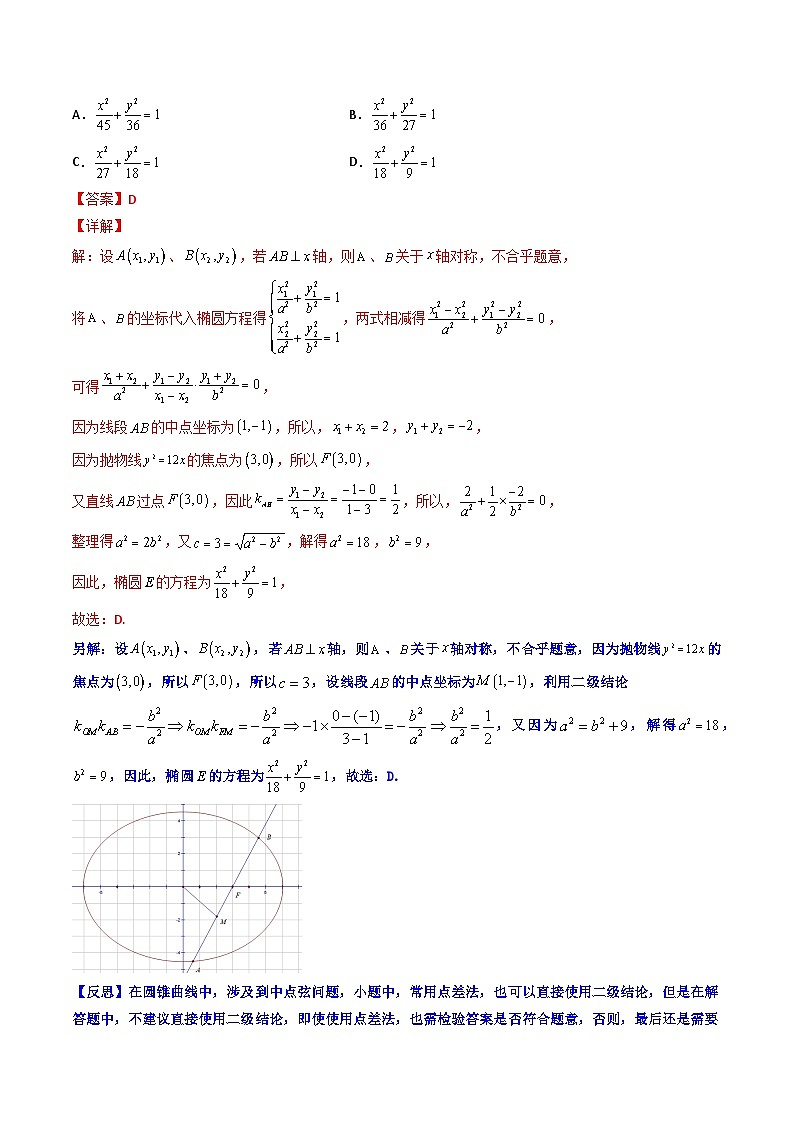 A. x²/45 + y²/36 = 1    B. x²/36 + y²/27 = 1
C. x²/27 + y²/18 = 1    D. x²/18 + y²/9 = 1
【答案】D
【详解】
解：设 A(x₁,y₁)、B(x₂,y₂)，若 AB⊥x 轴，则 A、B 关于 x 轴对称，不合乎题意，
将 A、B 的坐标代入椭圆方程得 { x₁²/a² + y₁²/b² = 1, x₂²/a² + y₂²/b² = 1 ，两式相减得 (x₁²−x₂²)/a² + (y₁²−y₂²)/b² = 0，
可得 (x₁+x₂)/a² + (y₁−y₂)/(x₁−x₂)·(y₁+y₂)/b² = 0，
因为线段 AB 的中点坐标为 (1,−1)，所以，x₁+x₂=2，y₁+y₂=−2，
因为抛物线 y²=12x 的焦点为 (3,0)，所以 F(3,0)，
又直线 AB 过点 F(3,0)，因此 k_AB = (y₁−y₂)/(x₁−x₂) = (−1−0)/(1−3) = 1/2，所以，2/a² + 1/2 × −2/b² = 0，
整理得 a²=2b²，又 c=3=√(a²−b²)，解得 a²=18，b²=9，
因此，椭圆 E 的方程为 x²/18 + y²/9 = 1，
故选：D.
另解：设 A(x₁,y₁)、B(x₂,y₂)，若 AB⊥x 轴，则 A、B 关于 x 轴对称，不合乎题意，因为抛物线 y²=12x 的
焦点为 (3,0)，所以 F(3,0)，所以 c=3，设线段 AB 的中点坐标为 M(1,−1)，利用二级结论
k_OM k_AB = −b²/a² ⇒ k_OM k_EM = −b²/a² ⇒ −1×(0−(−1))/(3−1) = −b²/a² ⇒ b²/a² = 1/2，又因为 a²=b²+9，解得 a²=18，
b²=9，因此，椭圆 E 的方程为 x²/18 + y²/9 = 1，故选：D.
B
F
M
A
【反思】在圆锥曲线中，涉及到中点弦问题，小题中，常用点差法，也可以直接使用二级结论，但是在解
答题中，不建议直接使用二级结论，即使使用点差法，也需检验答案是否符合题意，否则，最后还是需要